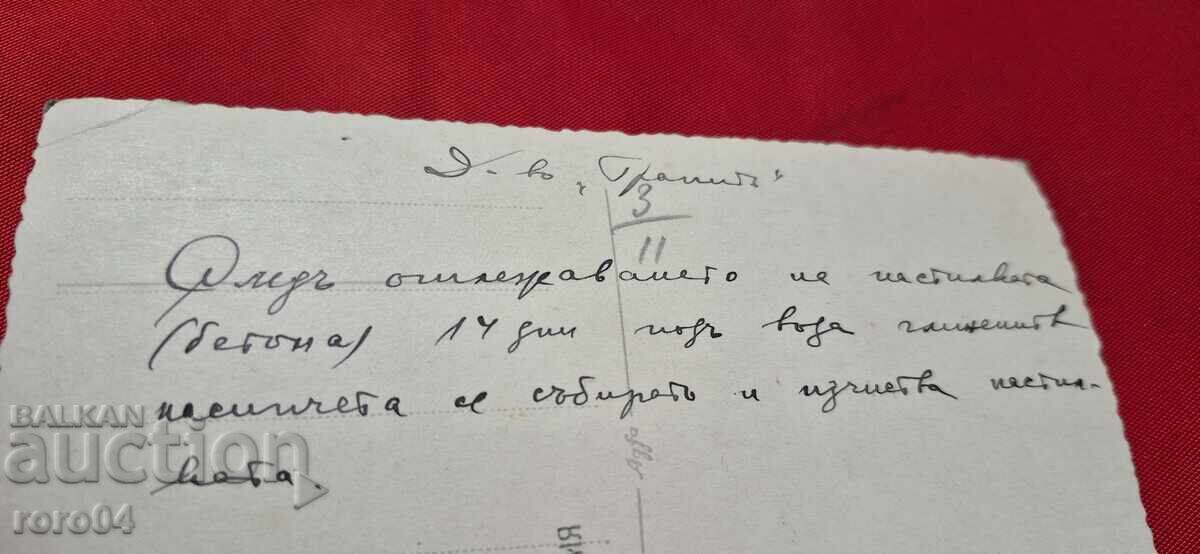 Д-во „Гранитъ"
3
11
Следъ отлежаването на настилката
(бетона) 14 дни подъ вода глинените
насипчета се събиратъ и изчиства настил-
ката.
BALKAN
auction
roro04